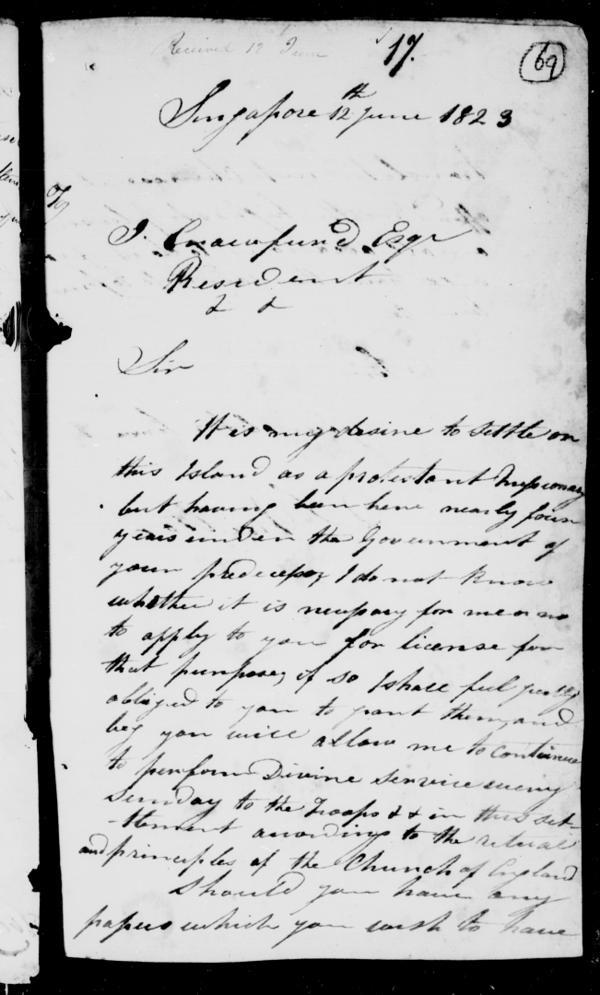 Received 12 June
17.
69
Singapore 12th June 1823
To
J. Crawfurd Esqr
Resident
& &
Sir
It is my desire to settle on
this Island as a protestant Missionary
but having been here nearly four
years under the Government of
your predecessor, I do not know
whether it is necessary for me or no
to apply to you for license for
that purpose, if so I shall feel greatly
obliged to you to grant them, and
beg you will allow me to continue
to perform Divine Service every
Sunday to the Troops & & in this set-
-tlement according to the ritual
and principles of the Church of England
Should you have any
papers which you wish to have